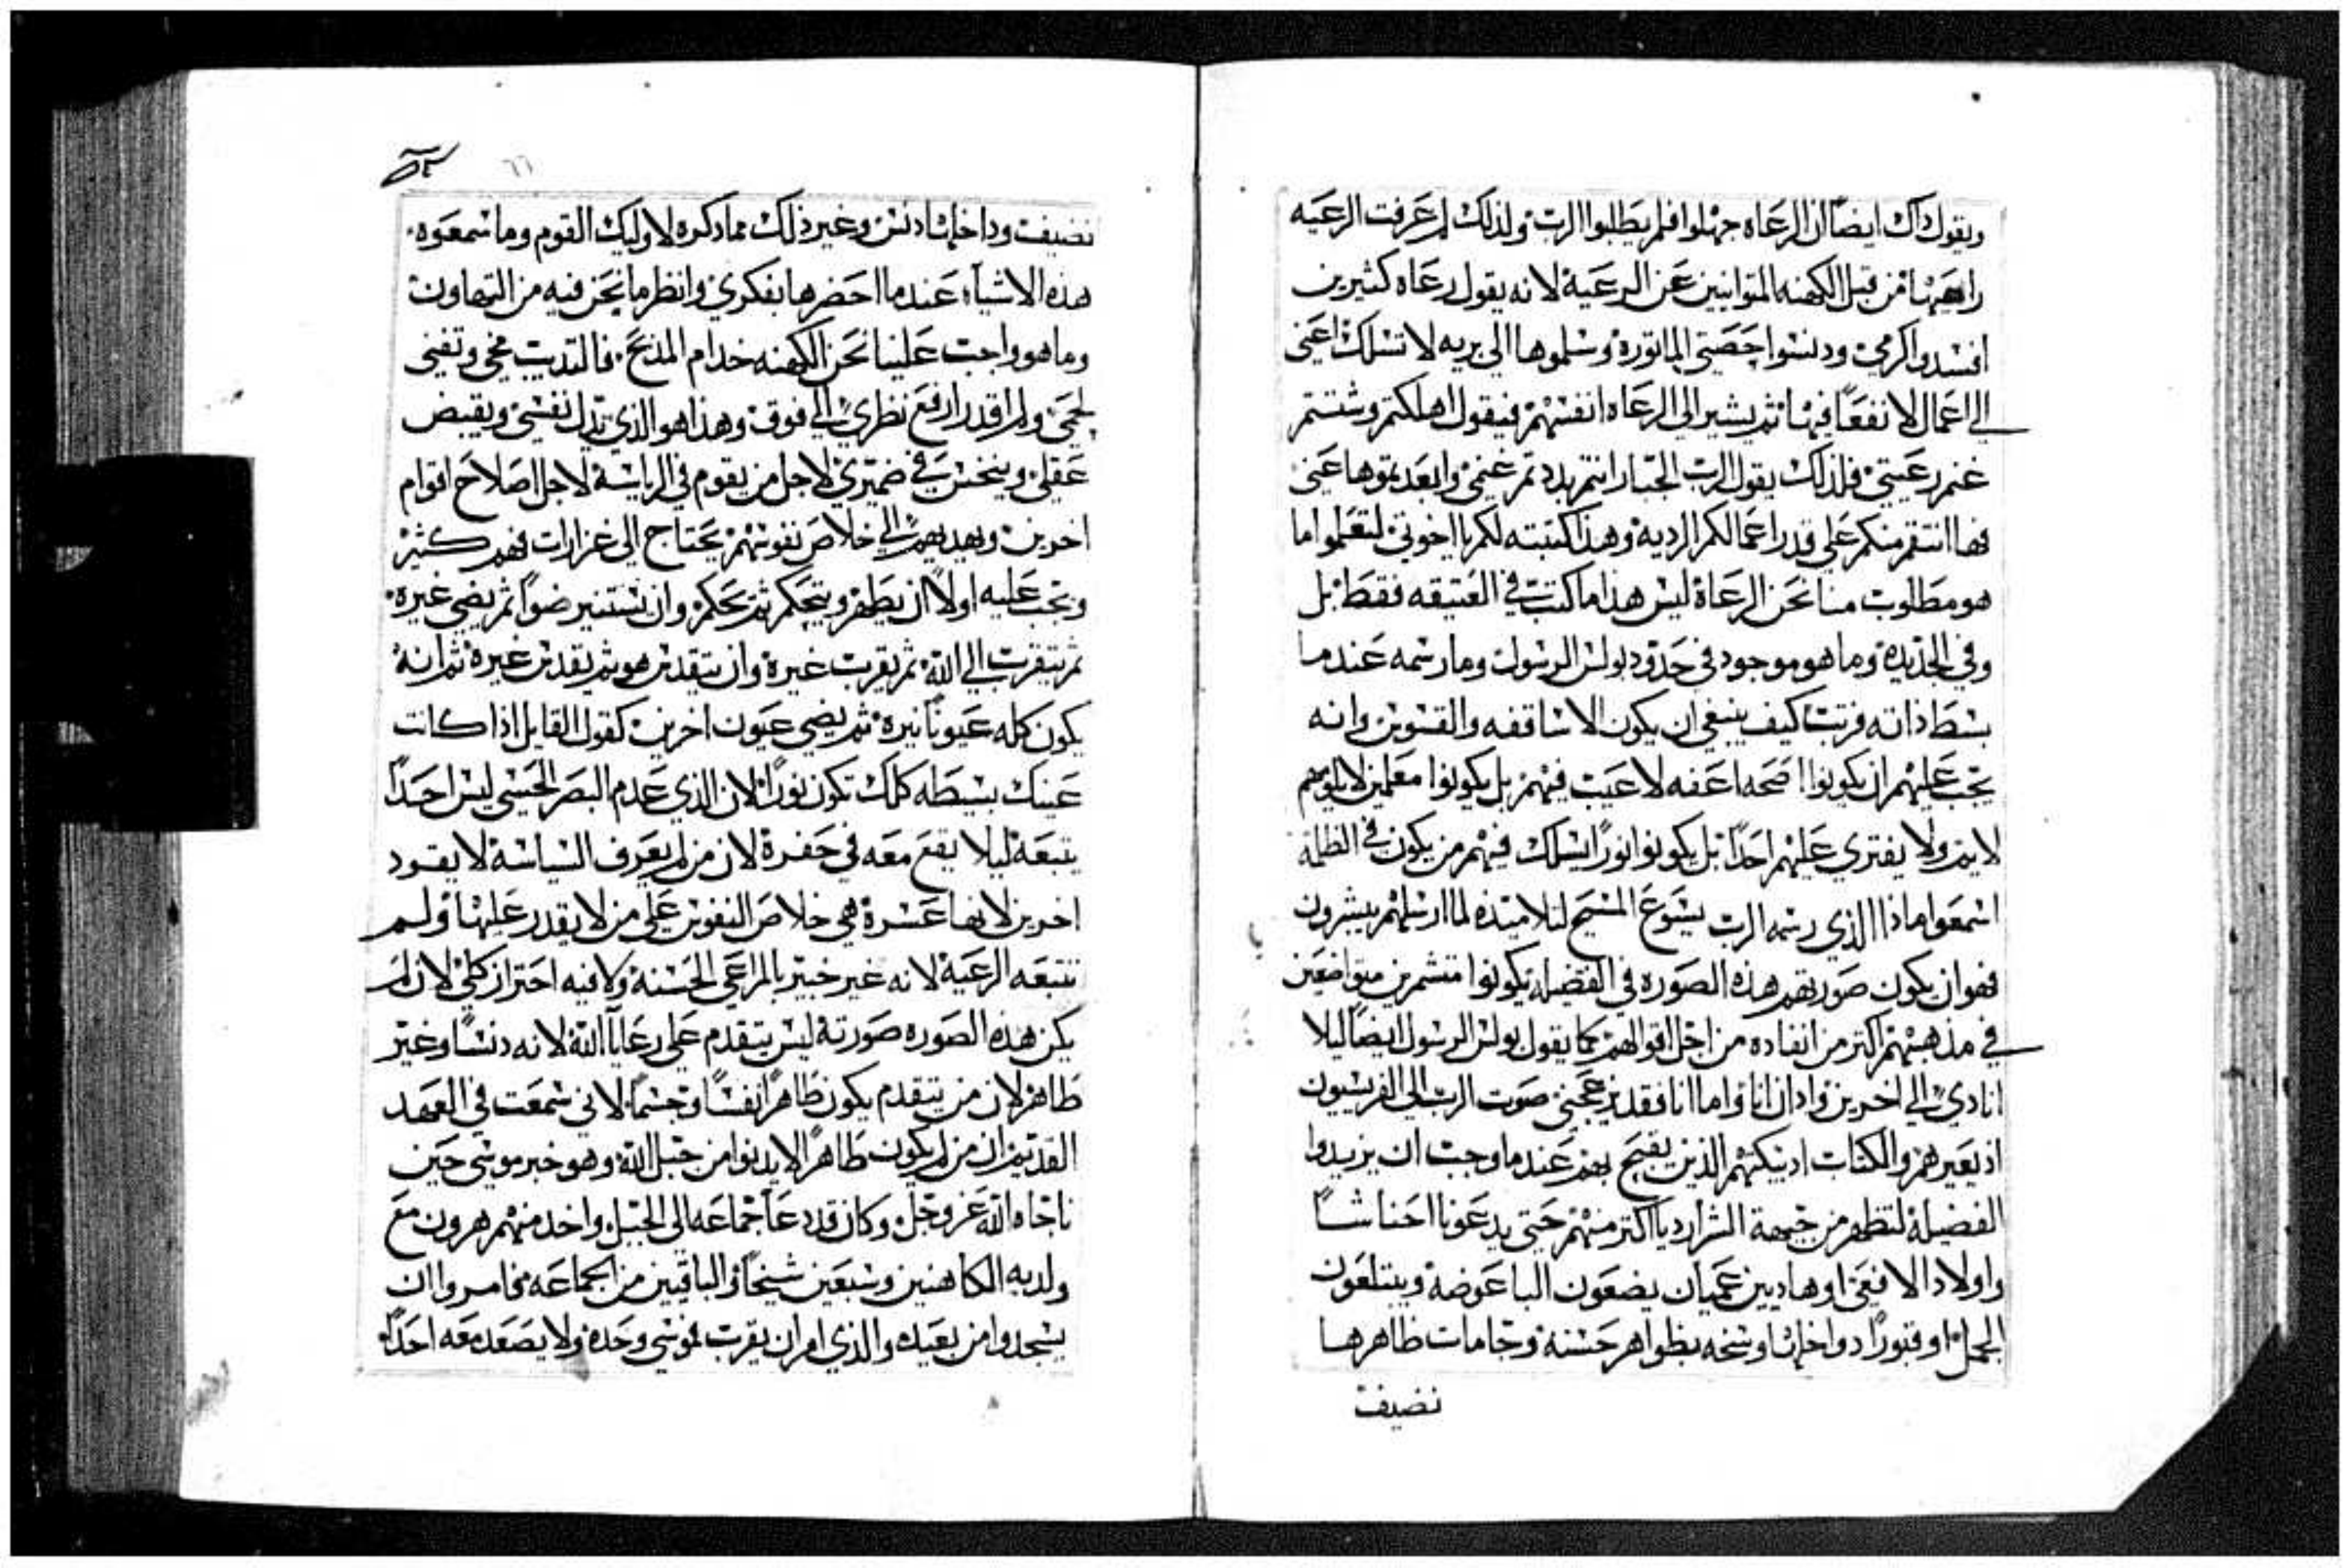 ويقول ذاك ايضاً ان الرعاه جهلوا فلم يطلبوا الرب ولذلك لم عرفت الرعيه
راعيها من قبل الكهنه المتوانيين عن الرعية لانه يقول رعاه كثيرين
افسدوا كرمي ودنسوا حصتي الماثورة وسلموها الي بريه لا تسلك اعني
الي اعمال لا نفعاً فيها ثم يشير الي الرعاه انفسهم فيقول اهلكتم وشتتم
غنم رعيتي فلذلك يقول الرب الجبار انتم بددتم غنمي وابعدتموها عني
فها انتقم منكم علي قدر اعمالكم الرديه وهذا كتبته لكم يا اخوتي لتعلموا ما
هو مطلوب منا نحن الرعاة ليس هذا ما كتب في العتيقه فقط بل
وفي الجديدة وما هو موجود في حدود بولس الرسول وما رسمه عندما
بسط ذاته فرتب كيف ينبغي ان يكون الاساقفه والقسوس وانه
يجب عليهم ان يكونوا اصحه اعفه لا عيب فيهم بل يكونوا معلمين لا يلومهم
لايم ولا يفتري عليهم احداً بل يكونوا نوراً يسلك فيهم من يكون في الظلمة
اسمعوا ماذا الذي رسمه الرب يشوع المسيح لتلاميذه لما ارسلهم يبشرون
فهو ان يكون صورتهم هذه الصوره في الفضيله يكونوا متشمرين متواضعين
في مذهبهم اكتر من انفاده من اجل اقوالهم كما يقول بولس الرسول ايضاً ليلا
انادي الي اخرين واذان انا واما انا فقد يزعجني صوت الرب الي الفريسيون
اذ يعيرهم والكتاب اذ يبكتهم الذين يقبح بهم عندما وجب ان يزيدوا
الفضيلة لتظهر من جهة الشر اردياً اكتر منهم حتي يدعونا احناشاً
واولاد الافعي او هاديين عميان يضعون الباعوضة ويبتلعون
الجمل او قبوراً دواخلها وسخه بظواهر حسنة وجامات ظاهرها
نضيف
٦٦
نضيف وداخلها دنس وغير ذلك مما ذكره لاوليك القوم وما سمعوه
هذه الاشياء عندما احضرها بفكري وانظر ما نحن فيه من التهاون
وما هو واجب علينا نحن الكهنه خدام المذبح فالتديب مخي وتفني
لحمي ولم اقدر ارفع نظري الي فوق وهذا هو الذي يذل نفسي ويقبض
عقلي وينخس في ضميري لاجل من يقوم في الرياسة لاجل اصلاح اقوام
اخرين ويهديهم الي خلاص نفوسهم يحتاج الي غزارت فهم كثير
ويجب عليه اولاً ان يطهر ويتحكم ثم يحكم وان يستنير ضواً ثم يضي غيره
ثم يتقرب الي الله ثم يقرب غيرة وان يتقدس هو ثم يقدس غيره ثم انه
يكون كله عيوناً نيره ثم يضي عيون اخرين كقول القايل اذا كانت
عينك بسيطه كلك تكون نوراً لان الذي عدم البصر الحسي ليس احداً
يتبعه ليلا يقع معه في حفرة لان من لم يعرف السياسة لا يقود
اخرين لانها عسرة هي خلاص النفوس علي من لا يقدر عليها ولم
تتبعه الرعية لانه غير خبير بالمراعي الحسنة ولا فيه احتراز كلي لان لم
يكن هذه الصوره صورتة ليس يتقدم علي رعايا الله لانه دنساً وغير
طاهر لان من يتقدم يكون طاهراً نفساً وجسماً لاني سمعت في العهد
القديم ان من لم يكون طاهراً لا يدنوا من جبل الله وهو خبر موسي حين
ناجاه الله عز وجل وكان قد دعا جماعه الي الجبل واخد منهم هرون مع
ولديه الكاهنين وسبعين شيخاً والباقيين من الجماعه فامروا ان
يسجدوا من بعيد والذي امر ان يقرب لموسي وحده ولا يصعد معه احداً